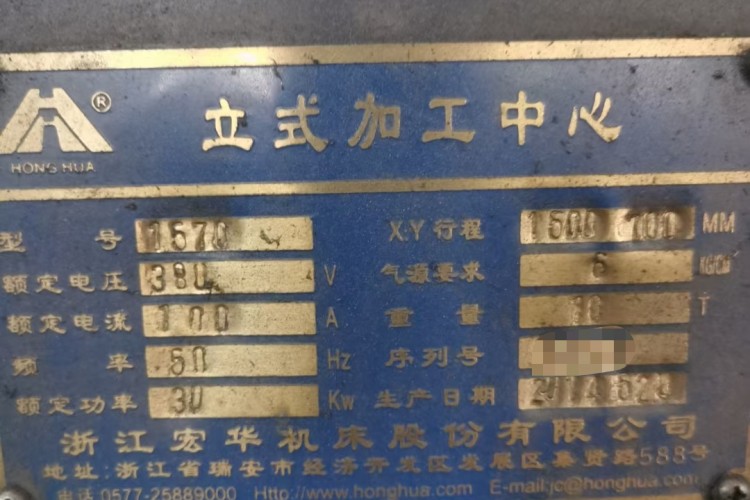 立式加工中心
®
HONG HUA
型 号 1570 X.Y行程 1500 700 MM
额定电压 380 V 气源要求 6 kg/cm²
额定电流 100 A 重 量 10 T
频 率 50 Hz 序列号
额定功率 30 Kw 生产日期 2014 520
浙江宏华机床股份有限公司
地址:浙江省瑞安市经济开发区发展区毓贤路588号
电话 0577-25889000 Http://www.honghua.com E-mail:jc@honghua.com